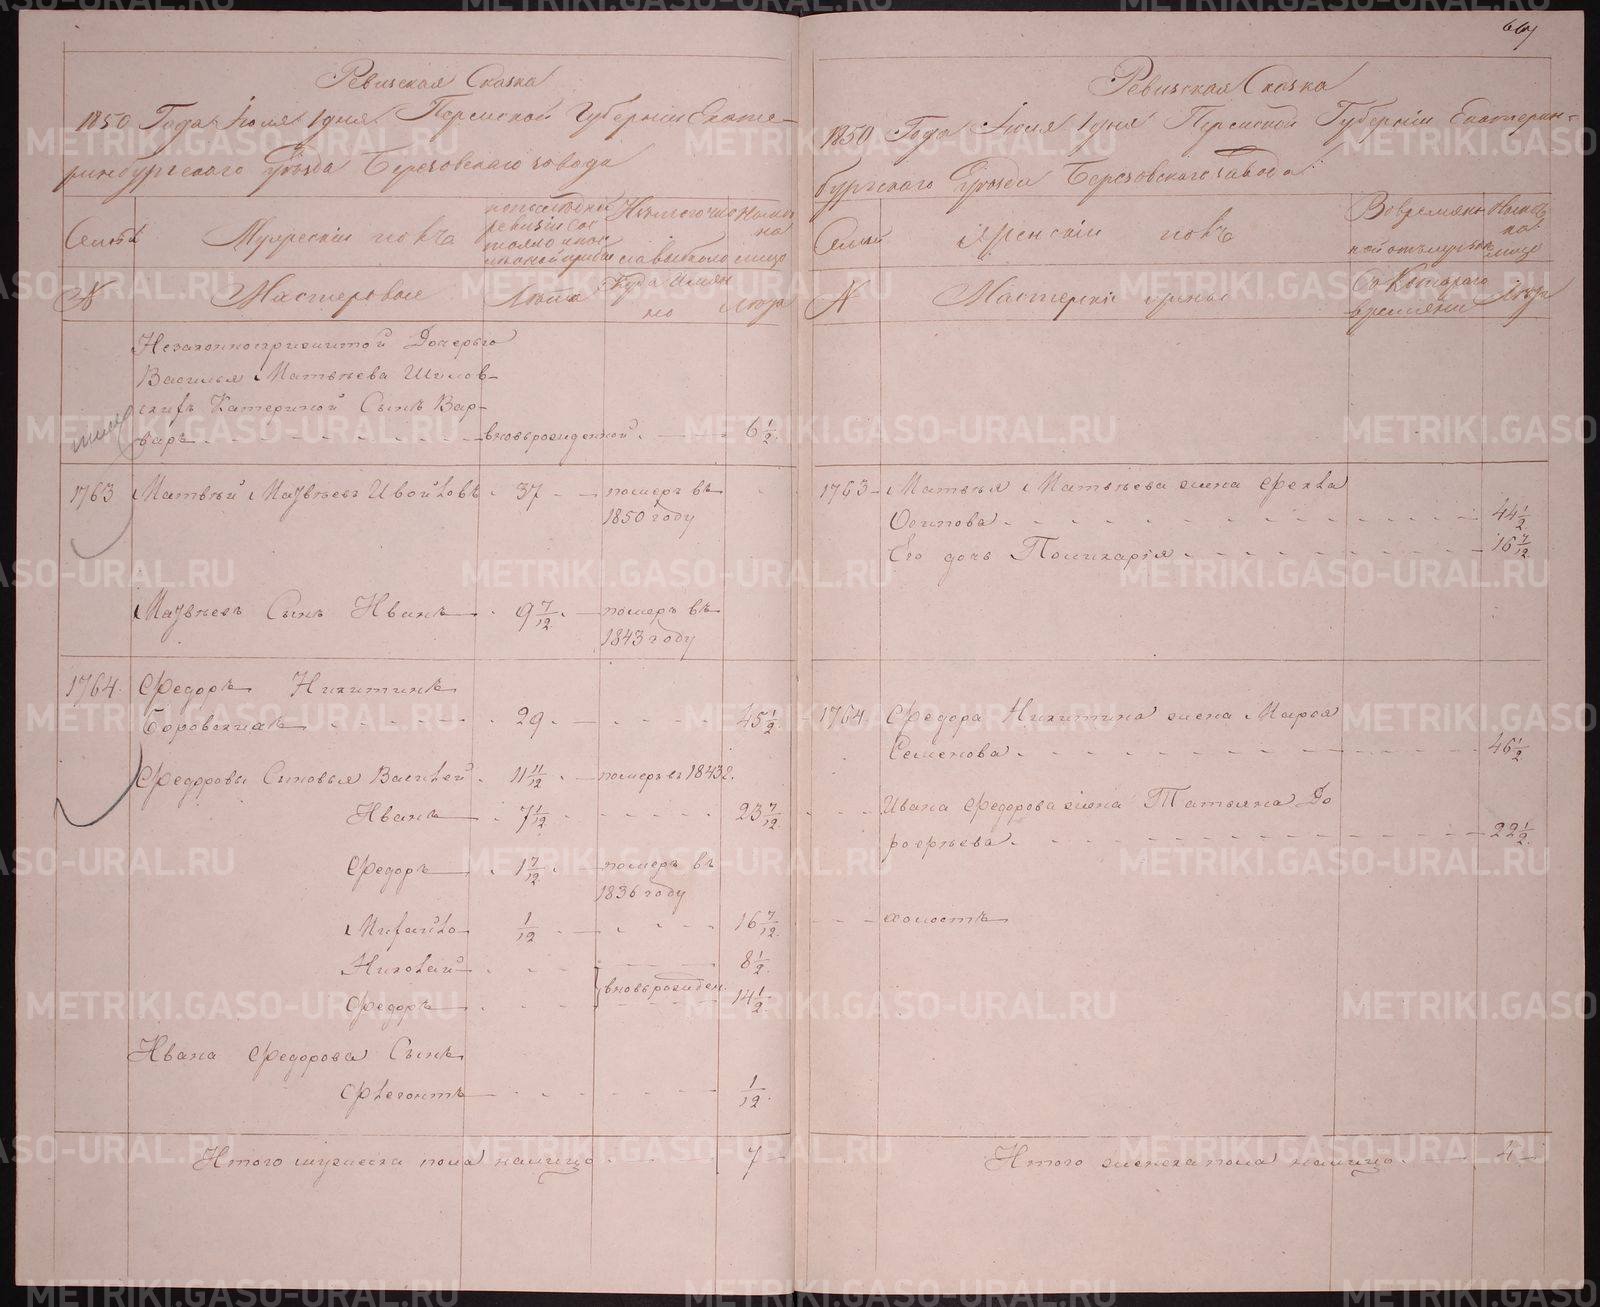 667
Ревизская Сказка
1850 Года Июля 1 дня Пермской Губернии Екате-
ринбургского Уѣзда Березовского завода
Семьи
Мужескій полъ
по последней
ревизіи сос
тояло
Изъ того числа выбыло
Ныне на лицо
№
Мастеровые
Лѣта
Когда Имян
но
Лѣта
Незаконноприжитой Дочерью
Василья Матвѣева Шилов-
скихъ Катериной Сынъ Вар-
варъ вновьрожденной 6 1/2
1763 Матвѣй Матвѣевъ Ивойловъ 37 померъ въ
1850 году
Матвѣевъ Сынъ Иванъ 9 7/12 померъ въ
1843 году
1764 Федоръ Никитинъ
Боровскихъ 29 45 1/2
Федоровы Сыновья Василей 11 11/12 померъ въ 1843 г.
Иванъ 7 1/12 23 7/12
Федоръ 1 7/12 померъ въ
1836 году
Михайло 1/12 16 7/12
Николай 8 1/2
вновьрожден.
Федоръ 14 1/2
Ивана Федорова Сынъ
Флегонтъ 1/12
Итого мужеска пола налицо 7
Ревизская Сказка
1850 Года Июля 1 дня Пермской Губерніи Екатерин-
бургского Уѣзда Березовского завода
Семьи
Женскій полъ
Во временно
ной отлучке
Ныне
на
лицо
№
Мастерскіе жены
Съ Которого
времяни
Лѣта
1763 Матвѣя Матвѣева жена Фекла
Осипова 44 1/2
Его дочь Поликарпія 16 7/12
1764 Федора Никитина жена Марья
Семенова 46 1/2
Ивана Федорова жена Татьяна До
рофѣева 22 1/2
холостъ
Итого женска пола налицо 4
METRIKI.GASO-URAL.RU